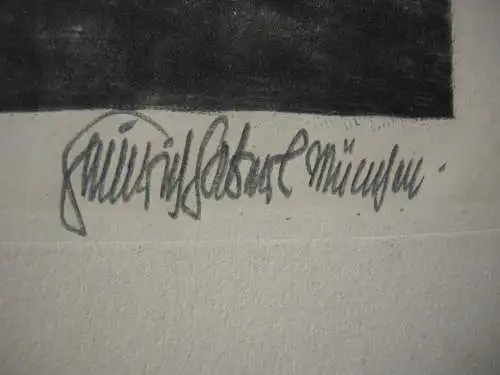 Heinrich Haberl München.